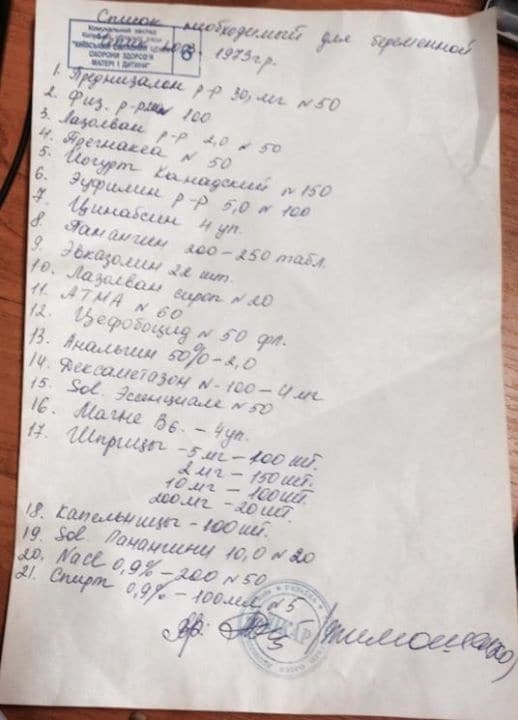 Список необходимый для беременной
1973 г.р.
Комунальний заклад
"КИЇВСЬКИЙ ОБЛАСНИЙ ЦЕНТР
ОХОРОНИ ЗДОРОВ'Я
МАТЕРІ І ДИТИНИ"
6
1. Преднизалон р-р 30, мг N 50
2. Физ. р-р 100
3. Лазолван р-р 2,0 N 50
4. Прегнакеа N 50
5. Йогурт Канадский N 150
6. Эуфилин р-р 5,0 N 100
7. Цинабсин 4 уп.
8. Панангин 200-250 табл.
9. Эвказолин 22 шт.
10. Лазолван сироп N 20
11. АТМА N 60
12. Цефобоцид N 50 фл.
13. Анальгин 50% - 2,0
14. Дексаметазон N-100-4 мг
15. Sol. Эссенциале N 50
16. Магне В6. - 4 уп.
17. Шприцы - 5 мг - 100 шт.
2 мг - 150 шт.
10 мг - 100 шт.
200 мг - 20 шт.
18. Капельницы - 100 шт.
19. Sol. Панангини 10,0 N 20
20. NaCl 0,9% - 200 N 50
21. Спирт 0,9% - 100 мл N 5
ЛІКАР